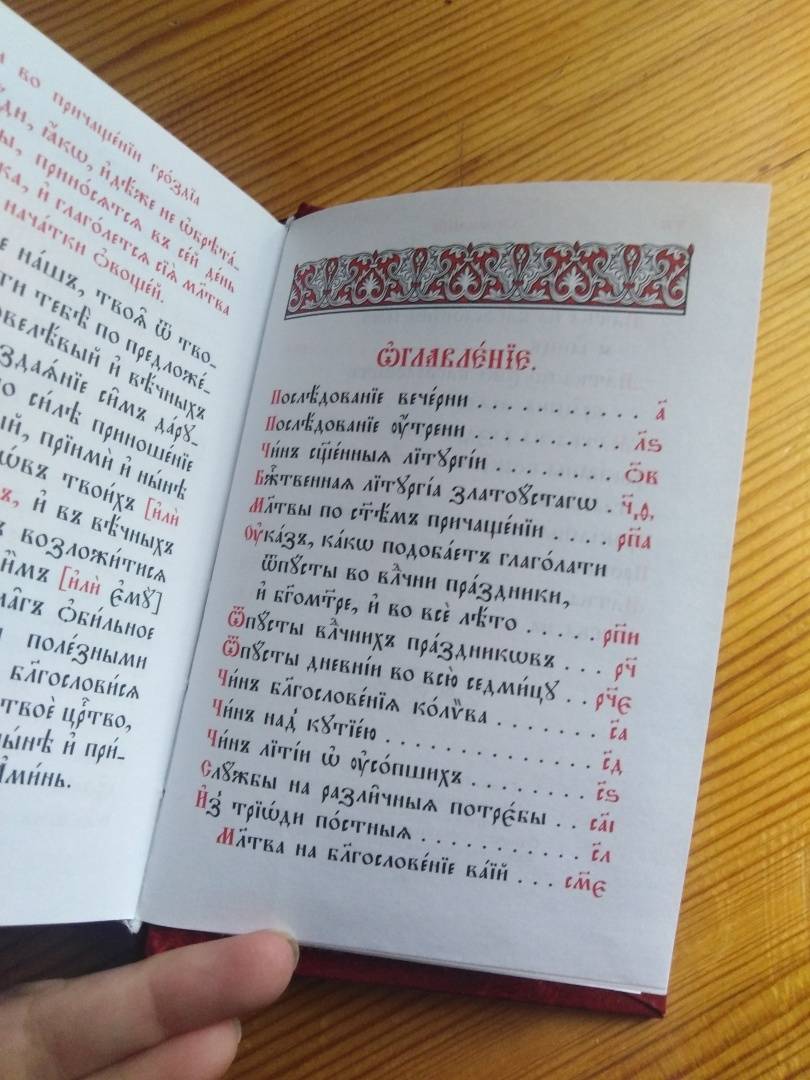 во причаще́нїи гро́здїа
ꙗ҆́кѡ, и҆дѣ́же не ѡ҆брѣта́-
прино́сѧтсѧ въ се́й де́нь
и҆ глаго́летсѧ сїѧ̀ мл҃тва
нача́тки ѻ҆воще́й.
на́шъ, твоѧ̑ ѿ тво-
тебѣ̀ по предложе́-
и҆ вѣ́чныхъ
си̑мъ да́рꙋ-
по си́лѣ приноше́нїе
прїимѝ и҆ ны́нѣ
твои́хъ [и҆лѝ
и҆ въ вѣ́чныхъ
возложи́тисѧ
[и҆лѝ є҆мꙋ̀]
ѻ҆би́льное
поле́зными
бл҃гослови́сѧ
твоѐ црⷭ҇тво,
ны́нѣ и҆ при́-
А҆ми́нь.
Ѡ҆главле́нїе.
Послѣ́дованїе вече́рни . . . . . . . . . . . а҃
Послѣ́дованїе ᲂу҆́трени . . . . . . . . . л҃ѕ
Чи́нъ сщ҃е́нныѧ лїтꙋргі́и . . . . . . . . ѻ҃в
Бж҃е́ственнаѧ лїтꙋргі́а златоꙋ́стагѡ . ч҃,ѳ.
Мл҃твы по ст҃ѣ́мъ причаще́нїи . . . . рп҃а
Оу҆ка́зъ, ка́кѡ подоба́етъ глаго́лати
ѿпꙋ́сты во влⷣчни пра́здники,
и҆ бг҃ома́тре, и҆ во всѐ лѣ́то . . . . . рп҃и
Ѿпꙋ́сты влⷣчнихъ пра́здникѡвъ . . . рч҃
Ѿпꙋ́сты дневні́и во всю̀ седми́цꙋ . . рч҃є
Чи́нъ бл҃гослове́нїѧ ко́лѷва . . . . . . . с҃а
Чи́нъ над̾ кꙋтїе́ю . . . . . . . . . . . . . . с҃д
Чи́нъ лїті́и ѡ҆ ᲂу҆со́пшихъ . . . . . . . . с҃ѕ
Слꙋ́жбы на разли̑чныѧ потрє́бы . . са҃і
И҆з̾ трїѡ́ди по́стныѧ . . . . . . . . . . . с҃л
Мл҃тва на бл҃гослове́нїе ва́їй . . . см҃є